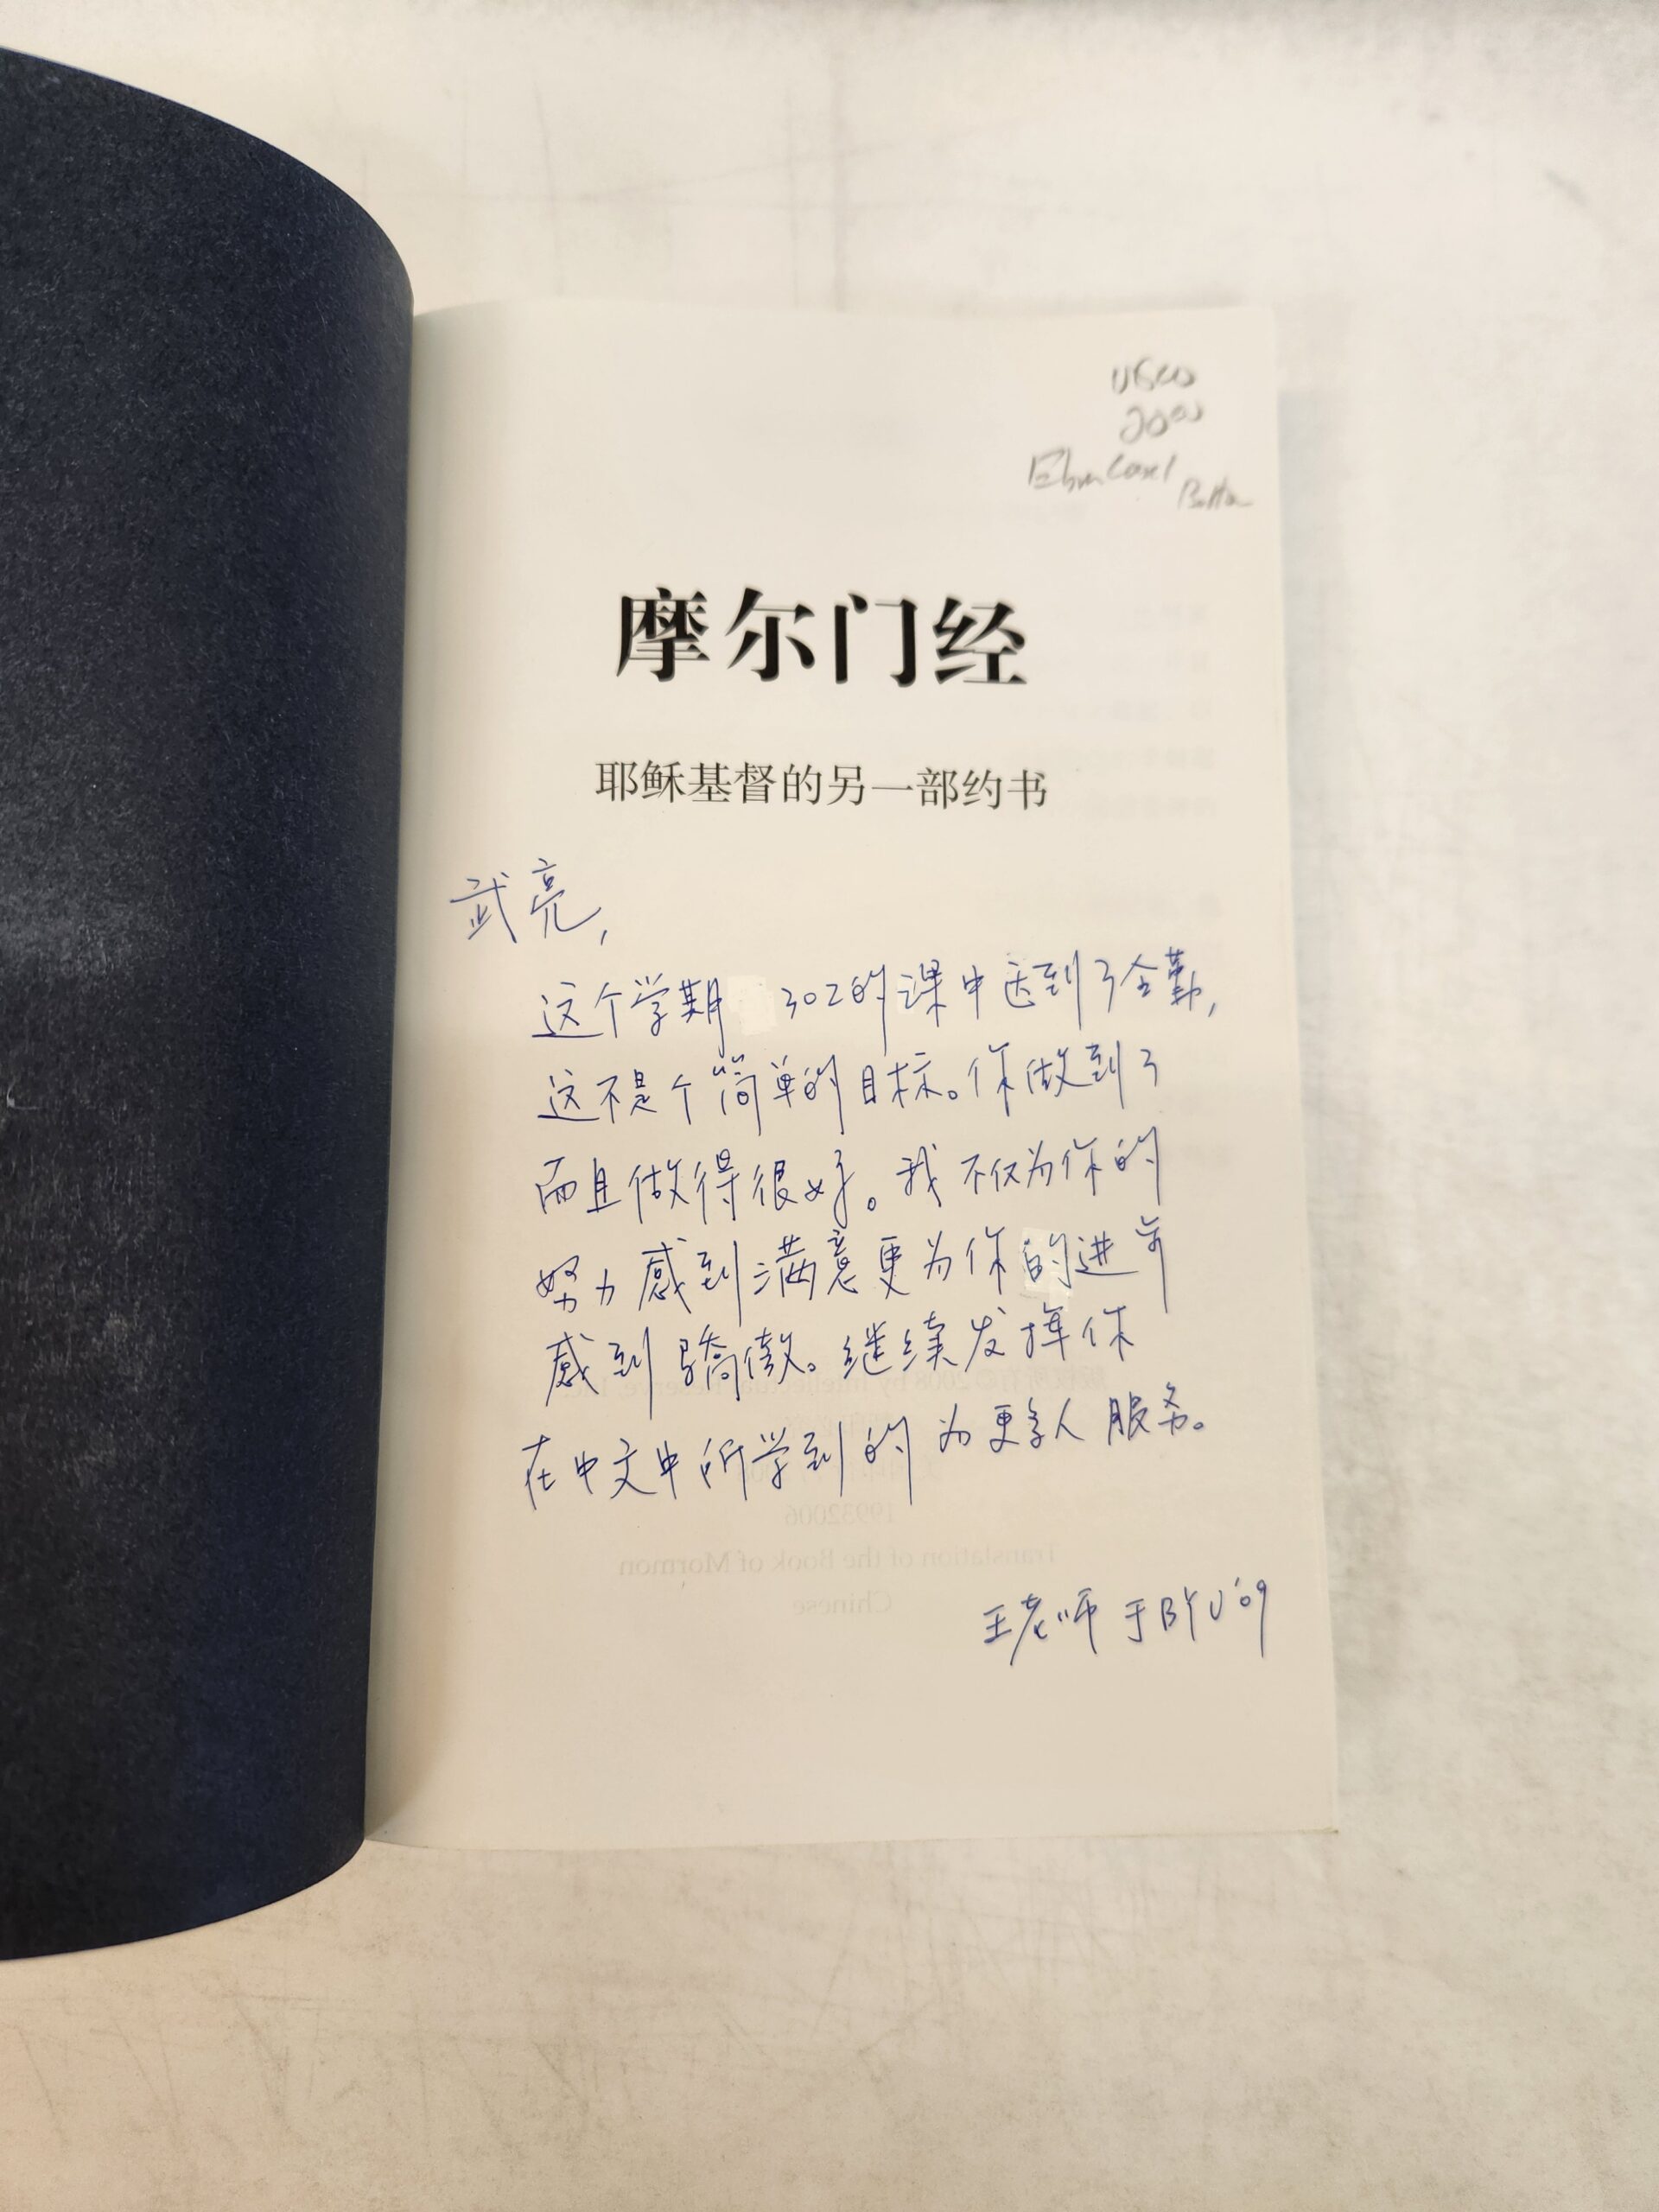 摩尔门经
耶稣基督的另一部约书
武亮,
这个学期 302的课中达到了全勤,
这不是个简单的目标。你做到了
而且做得很好。我不仅为你的
努力感到满意更为你的进步
感到骄傲。继续发挥你
在中文中所学到的为更多人服务。
王老师于BYU'09
19932006
Translation of the Book of Mormon
Chinese